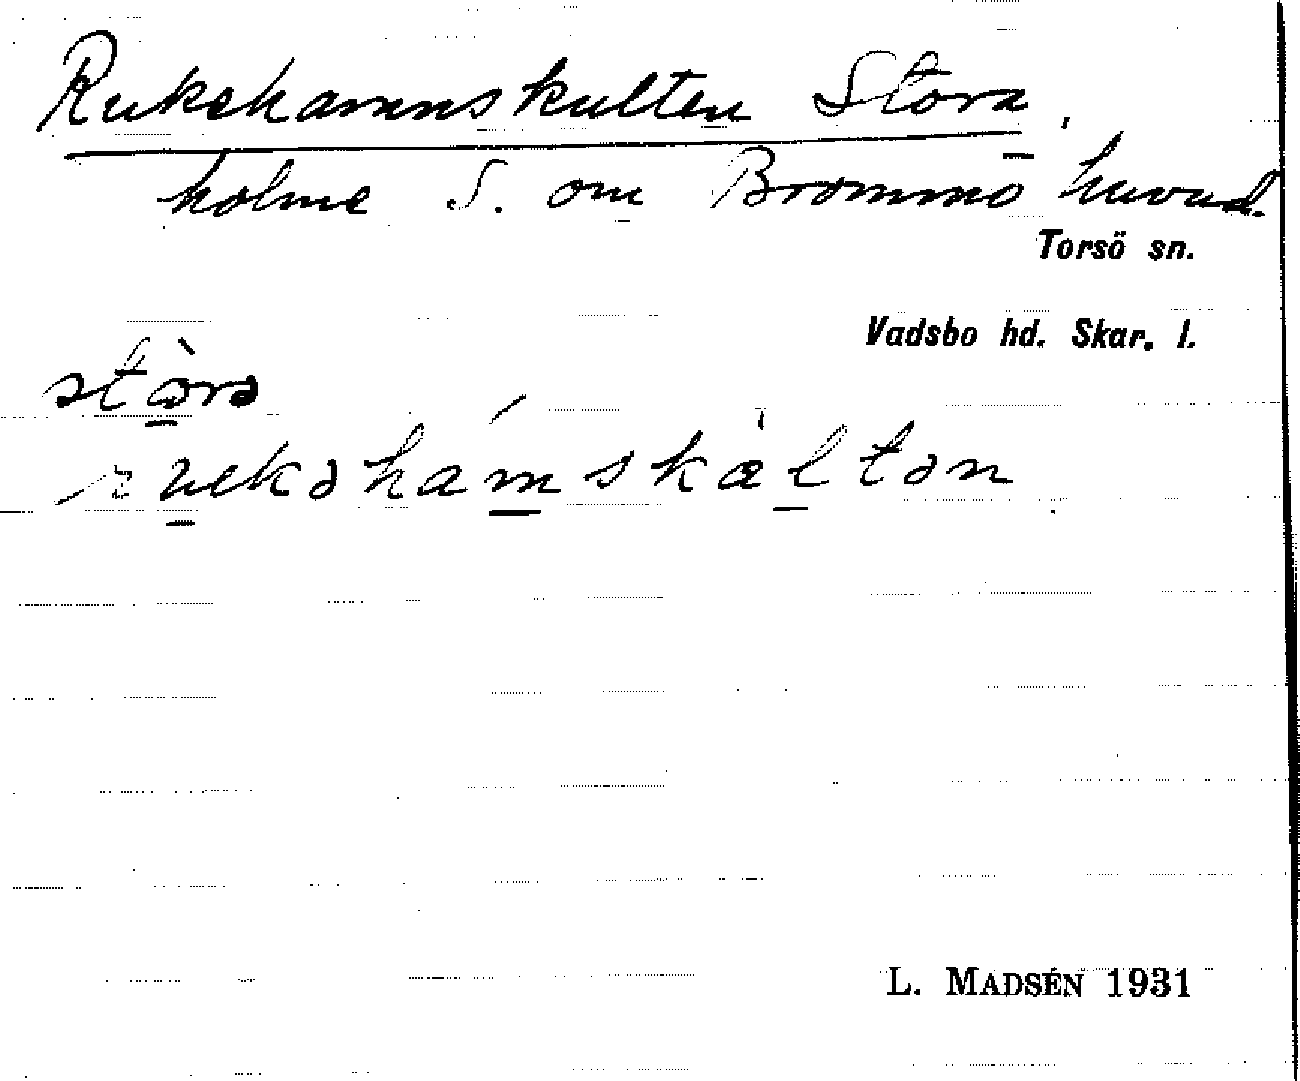 Rukehamnskulten Stora,
holme S. om Brommö huvud.
Torsö sn.
Vadsbo hd. Skar. l.
stòra
L. MADSÉN 1931